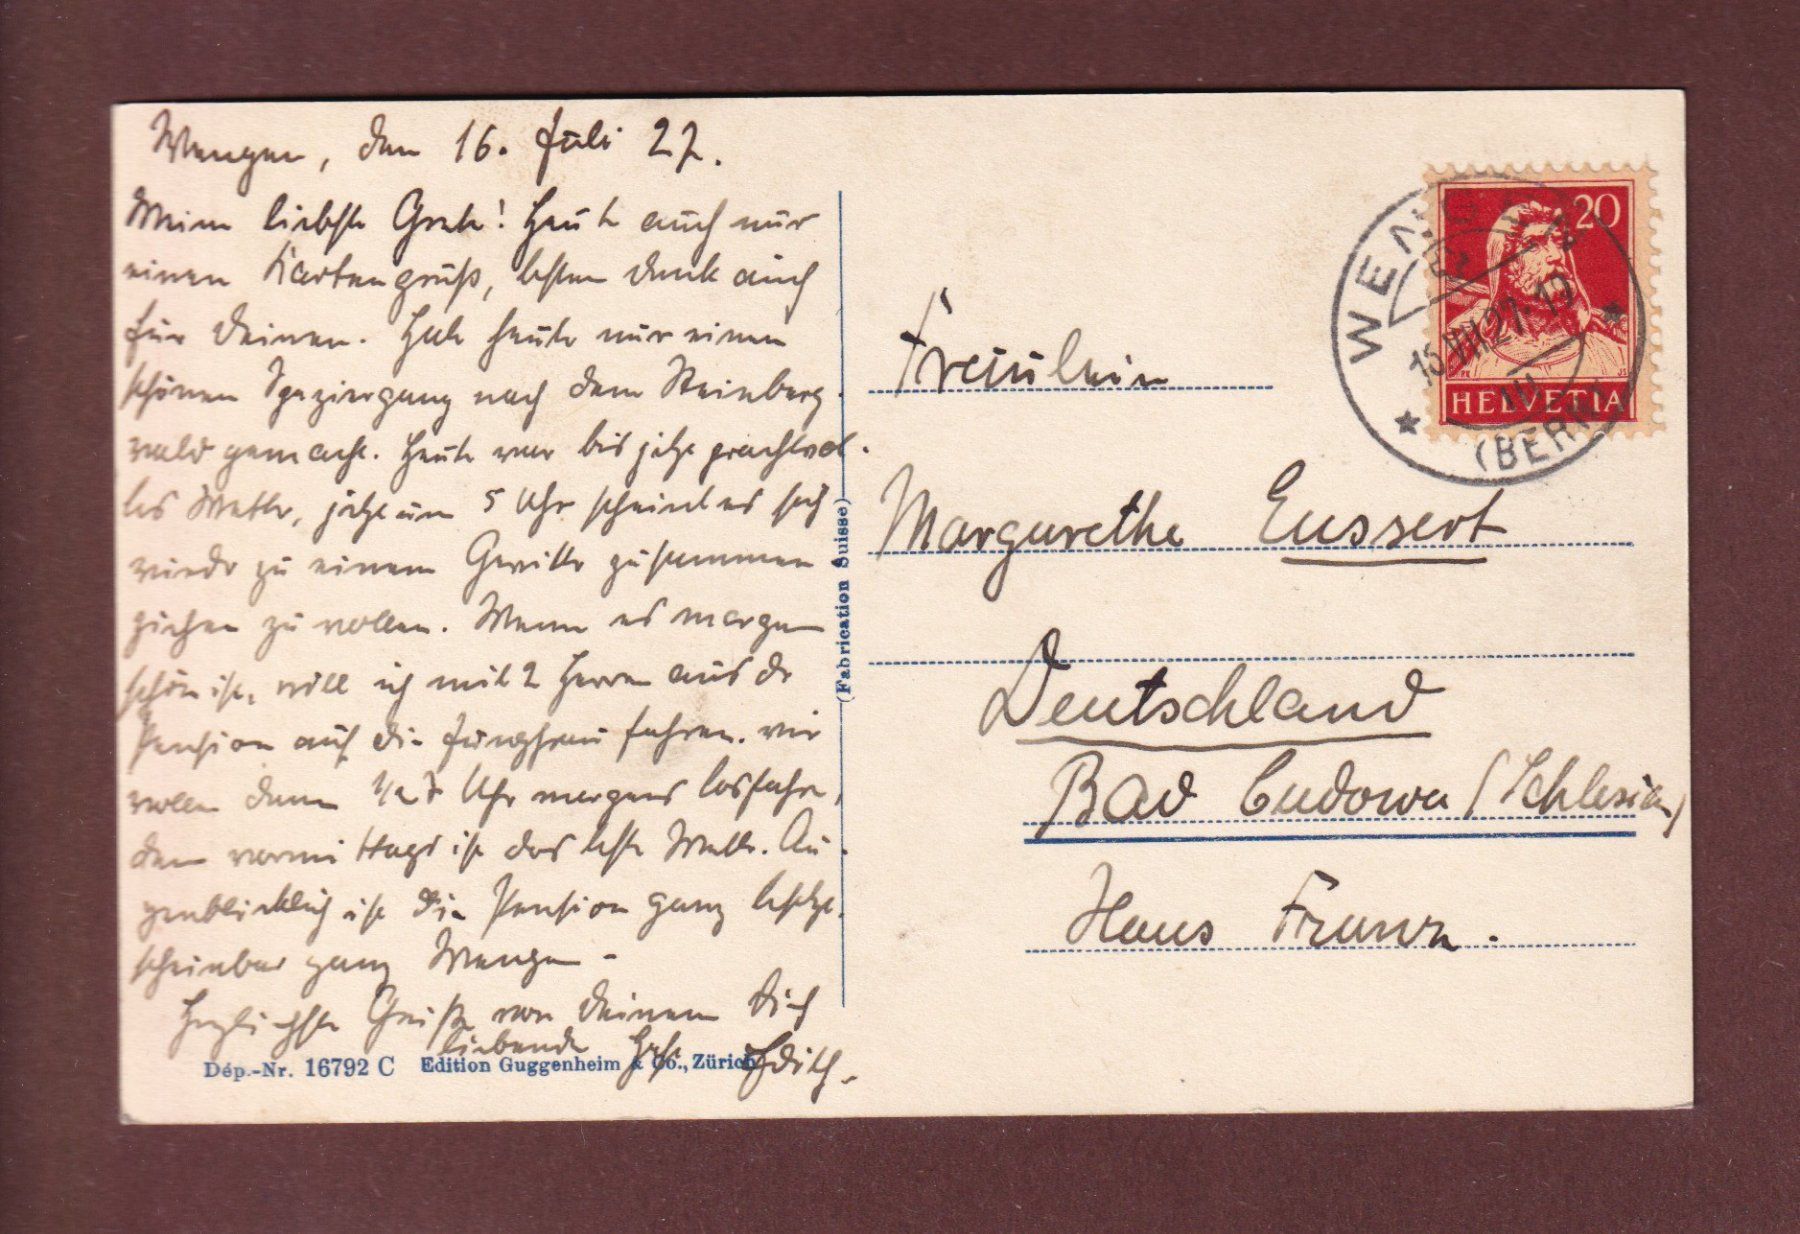 Wengen, den 16. Juli 27.
Meine liebste Grete! Heute auch nur
einen Kartengruß, besten Dank auch
für Deinen. Habe heute nur einen
schönen Spaziergang nach dem Steinberg-
wald gemacht. Heute war bis jetzt prachtvol-
les Wetter, jetzt um 5 Uhr scheint es sich
wieder zu einem Gewitter zusammen
ziehen zu wollen. Wenn es morgen
schön ist, will ich mit 2 Herren aus der
Pension auf die Jungfrau fahren. Wir
wollen dann 1/2 8 Uhr morgens losfahren,
denn vormittags ist das beste Wetter. Au-
genblicklich ist die Pension ganz besetzt.
scheinbar ganz Wengen -
Herzlichste Grüße von Deinem Dich
liebende Edith.
Dép.-Nr. 16792 C Edition Guggenheim & Co., Zürich
(Fabrication Suisse)
WENGEN
15.VII.27.19
(BERN)
20
HELVETIA
Fräulein
Margarethe Eussert
Deutschland
Bad Cudowa (Schlesien)
Haus Franz.